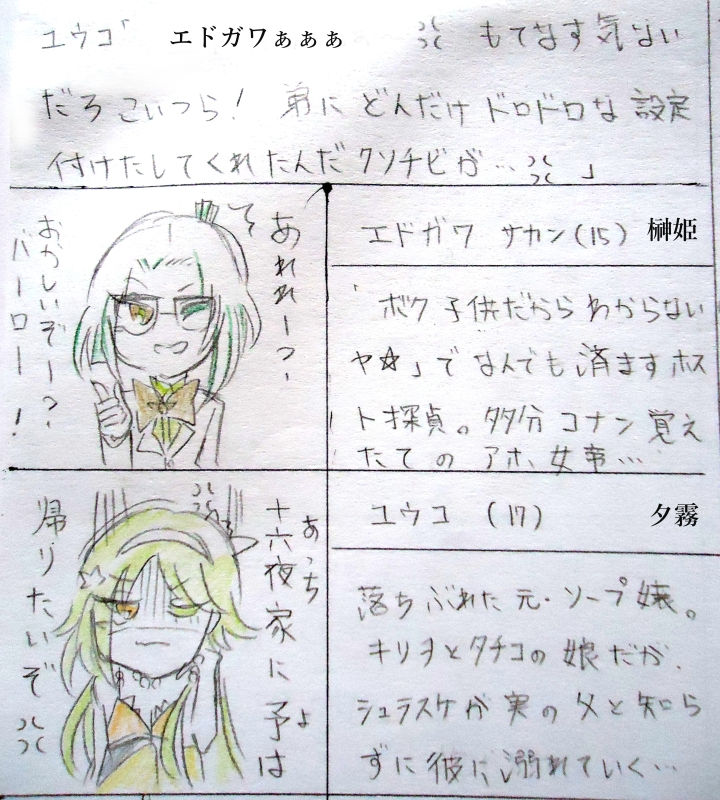 ユウコ゛ エドガワぁぁぁ もてなす気ない
だろこいつら! 弟にどんだけドロドロな設定
付けたしてくれたんだクソチビが… 」
あれれーっ、
おかしいぞーっ、
バーロー!
エドガワ サカン(15) 榊姫
「ボク子供だからわからない
ヤ☆」でなんでも済ますホス
ト探偵。多分コナン覚え
たてのアホ、女帝…
あっち
十六夜家に予は
よ
帰りたいぞ
ユウコ (17) 夕霧
落ちぶれた元・ソープ嬢。
キリヲとタチコの娘だが、
シュラスケが実の父と知ら
ずに彼に溺れていく…